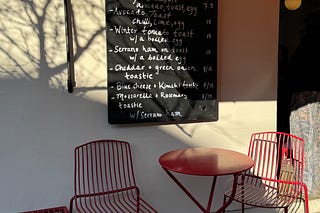 avocado, toast, egg 7.5
- Avocado Toast
Chilli, Lime, egg
- Winter tomato toast
w/ a boiled egg
- Serrano ham on toast
w/ a boiled egg
- Cheddar + green onion
toastie
- Blue cheese + Kimchi toasty
- Mozzarella + Rosemary
toastie
w/ Serrano ham